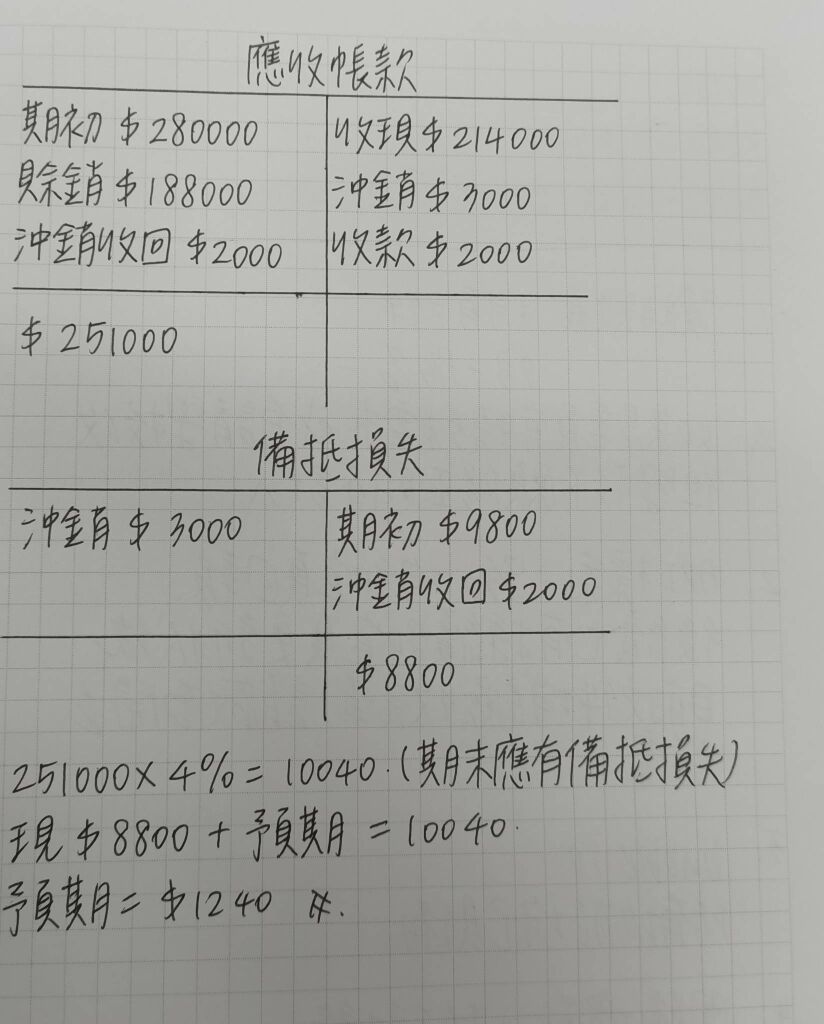 應收帳款
期初 $280000 收現 $214000
賒銷 $188000 沖銷 $3000
沖銷收回 $2000 收款 $2000
$251000
備抵損失
沖銷 $3000 期初 $9800
沖銷收回 $2000
$8800
251000×4%=10040.(期末應有備抵損失)
現 $8800 + 預期 = 10040.
預期 = $1240 #.